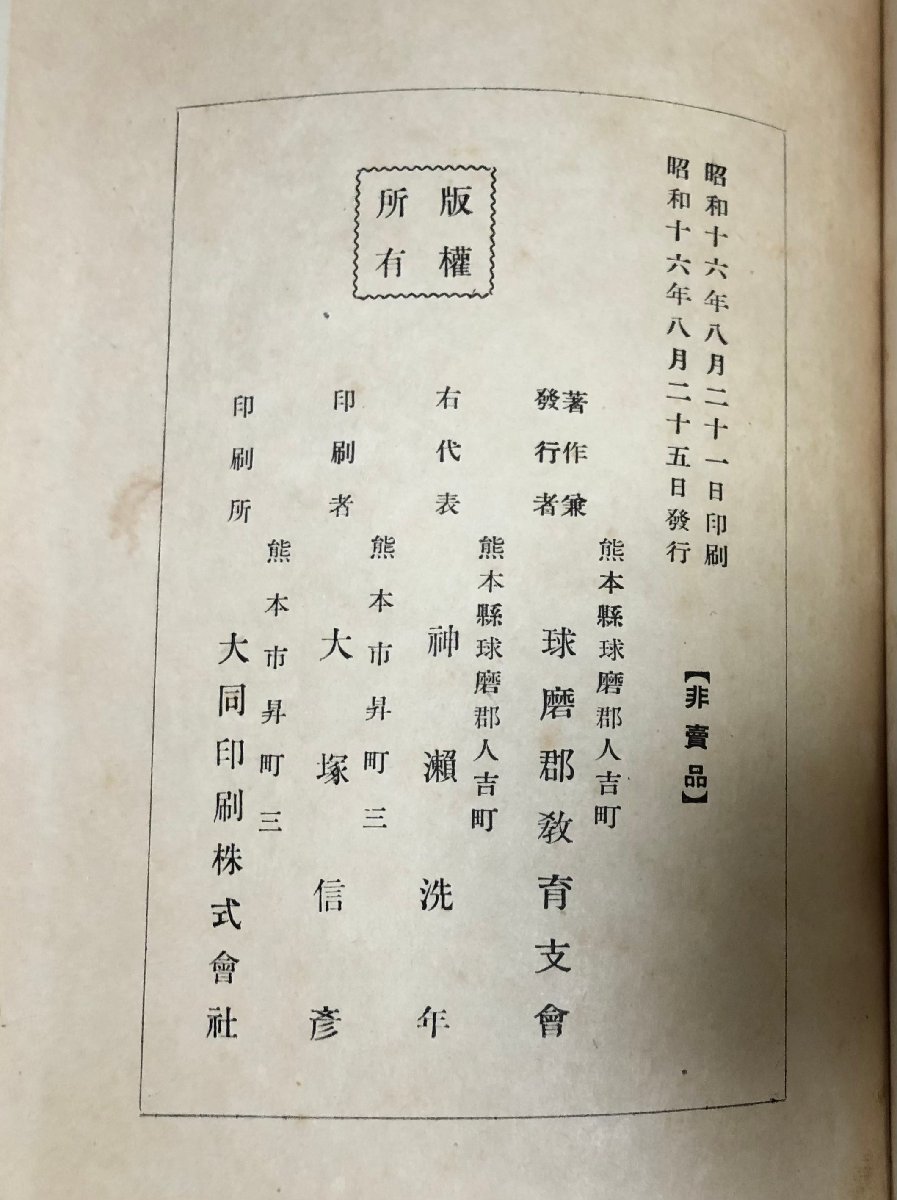 昭和十六年八月二十一日印刷
昭和十六年八月二十五日發行
【非賣品】
版權
所有
著作兼
發行者
熊本縣球磨郡人吉町
球磨郡敎育支會
右代表
熊本縣球磨郡人吉町
神瀨洗年
印刷者
熊本市昇町三
大塚信彥
印刷所
熊本市昇町三
大同印刷株式會社